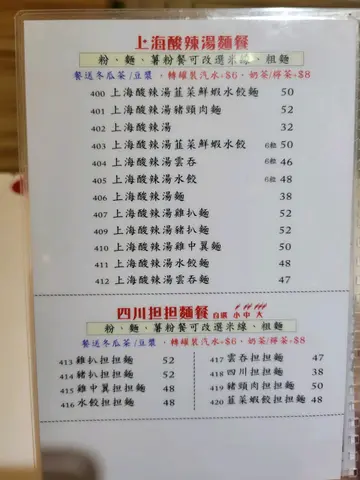 上海酸辣湯麵餐
粉、麵、薯粉餐可改選米線、粗麵
餐送冬瓜茶/豆漿、轉罐裝汽水+$6、奶茶/檸茶+$8
400 上海酸辣湯韮菜鮮蝦水餃麵 50
401 上海酸辣湯豬頸肉麵 52
402 上海酸辣湯 32
403 上海酸辣湯韮菜鮮蝦水餃 6粒 50
404 上海酸辣湯雲吞 6粒 46
405 上海酸辣湯水餃 6粒 48
406 上海酸辣湯麵 38
407 上海酸辣湯雞扒麵 52
409 上海酸辣湯豬扒麵 52
410 上海酸辣湯雞中翼麵 50
411 上海酸辣湯水餃麵 48
412 上海酸辣湯雲吞麵 47
四川担担麵餐 自選 小 中 大
粉、麵、薯粉餐可改選米線、粗麵
餐送冬瓜茶/豆漿、轉罐裝汽水+$6、奶茶/檸茶+$8
413 雞扒担担麵 52
414 豬扒担担麵 52
415 雞中翼担担麵 48
416 水餃担担麵 48
417 雲吞担担麵 47
418 四川担担麵 38
419 豬頸肉担担麵 50
420 韮菜蝦餃担担麵 48